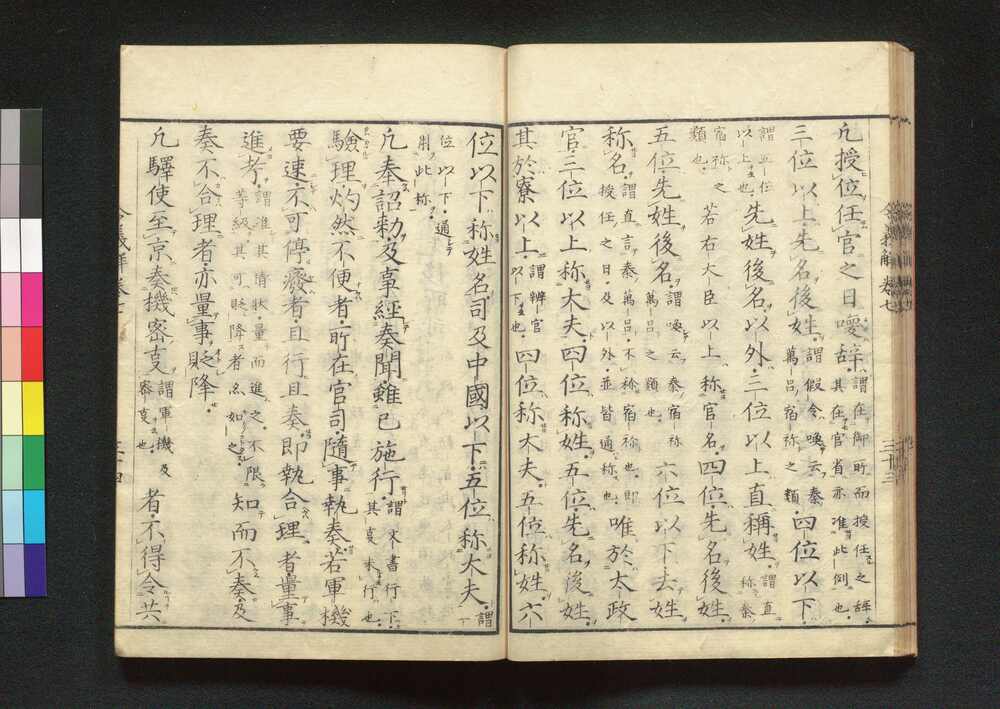 凢授位任官之日喚辞謂在御所而授任之辞
其在官省亦准此例也
三位以上先名後姓謂假令喚云秦
萬呂宿祢之類四位以下
謂五位
以上也先姓後名以外三位以上直稱姓謂直
称秦
宿祢之
類也若右大臣以上称官名四位先名後姓
五位先姓後名謂喚云秦宿祢
萬呂之類也六位以下去姓
称名謂直言秦萬呂不称宿祢也即
授任之日及以外並皆通称也唯於太政
官三位以上称大夫四位称姓五位先名後姓
其於寮以上謂辨官
以下也四位称大夫五位称姓六
位以下称姓名司及中國以下五位称大夫謂
下
位以下通
用此称
凢奉詔勅及事經奏聞雖已施行謂未書行下
其㚑未行也
驗理灼然不便者所在官司隨事執奏若軍機
要速不可停癈者且行且奏即執合理者量事
進考謂准其情状量而進之不限
等級其可貶降者亦如之知而不奏及
奏不合理者亦量事貶降
凢驛使至京奏機密事謂軍機及
密事也者不得令共
令義解卷七
三十三